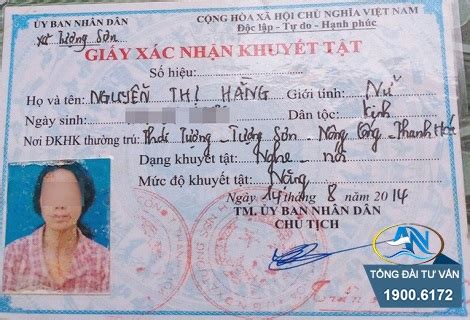 ỦY BAN NHÂN DÂN
xã Tượng Sơn
CỘNG HÒA XÃ HỘI CHỦ NGHĨA VIỆT NAM
Độc lập - Tự do - Hạnh phúc
GIẤY XÁC NHẬN KHUYẾT TẬT
Số hiệu:
Họ và tên: NGUYỄN THỊ HẰNG Giới tính: Nữ
Ngày sinh: Dân tộc: Kinh
Nơi ĐKHK thường trú: Tượng Sơn - Nông Cống - Thanh Hoá
Dạng khuyết tật: Nghe - nói
Mức độ khuyết tật: Nặng
Ngày 14 tháng 8 năm 2014
TM. ỦY BAN NHÂN DÂN
CHỦ TỊCH
AN
TỔNG ĐÀI TƯ VẤN
1900.6172